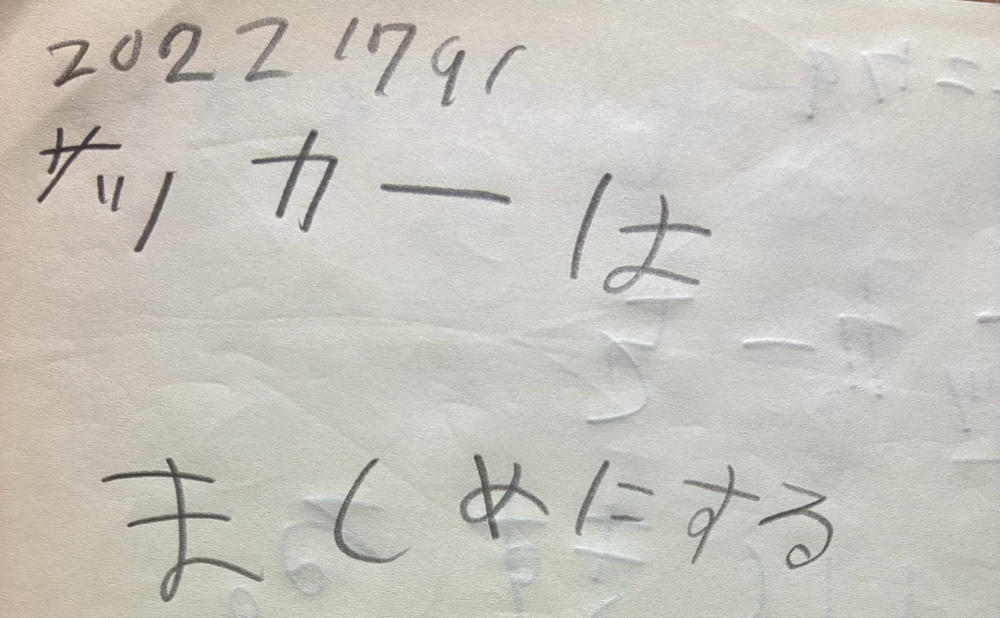 2022 1791
サッカーは
ましめにする